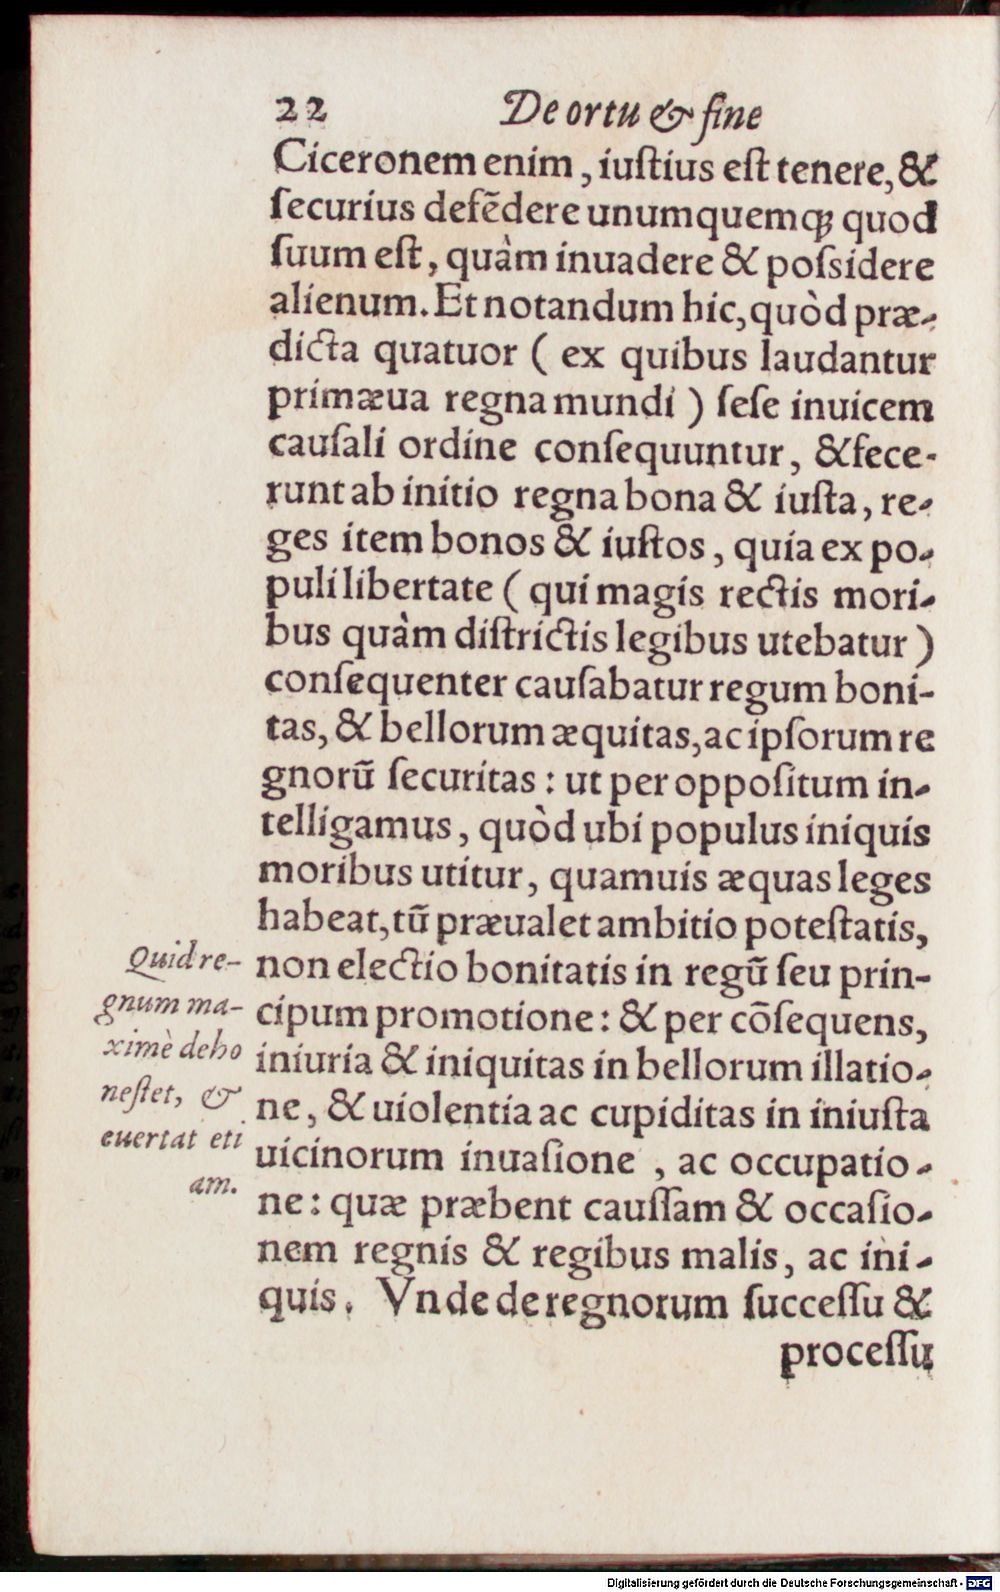 22 De ortu & fine
Ciceronem enim, iuſtius eſt tenere, &
ſecurius defẽdere unumquemq́; quod
ſuum eſt, quàm inuadere & poſsidere
alienum. Et notandum hic, quòd præ-
dicta quatuor ( ex quibus laudantur
primæua regna mundi ) ſeſe inuicem
cauſali ordine conſequuntur, & fece-
runt ab initio regna bona & iuſta, re-
ges item bonos & iuſtos, quia ex po-
puli libertate ( qui magis rectis mori-
bus quàm diſtrictis legibus utebatur )
conſequenter cauſabatur regum boni-
tas, & bellorum æquitas, ac ipſorum re
gnorũ ſecuritas : ut per oppoſitum in-
telligamus, quòd ubi populus iniquis
moribus utitur, quamuis æquas leges
habeat, tũ præualet ambitio poteſtatis,
non electio bonitatis in regũ ſeu prin-
cipum promotione : & per cõſequens,
iniuria & iniquitas in bellorum illatio-
ne, & uiolentia ac cupiditas in iniuſta
uicinorum inuaſione , ac occupatio-
ne : quæ præbent cauſſam & occaſio-
nem regnis & regibus malis, ac ini-
quis. Vnde de regnorum ſucceſſu &
proceſſu
Quid re-
gnum ma-
ximè deho
neſtet, &
euertat eti
am.
Digitalisierung gefördert durch die Deutsche Forschungsgemeinschaft - DFG